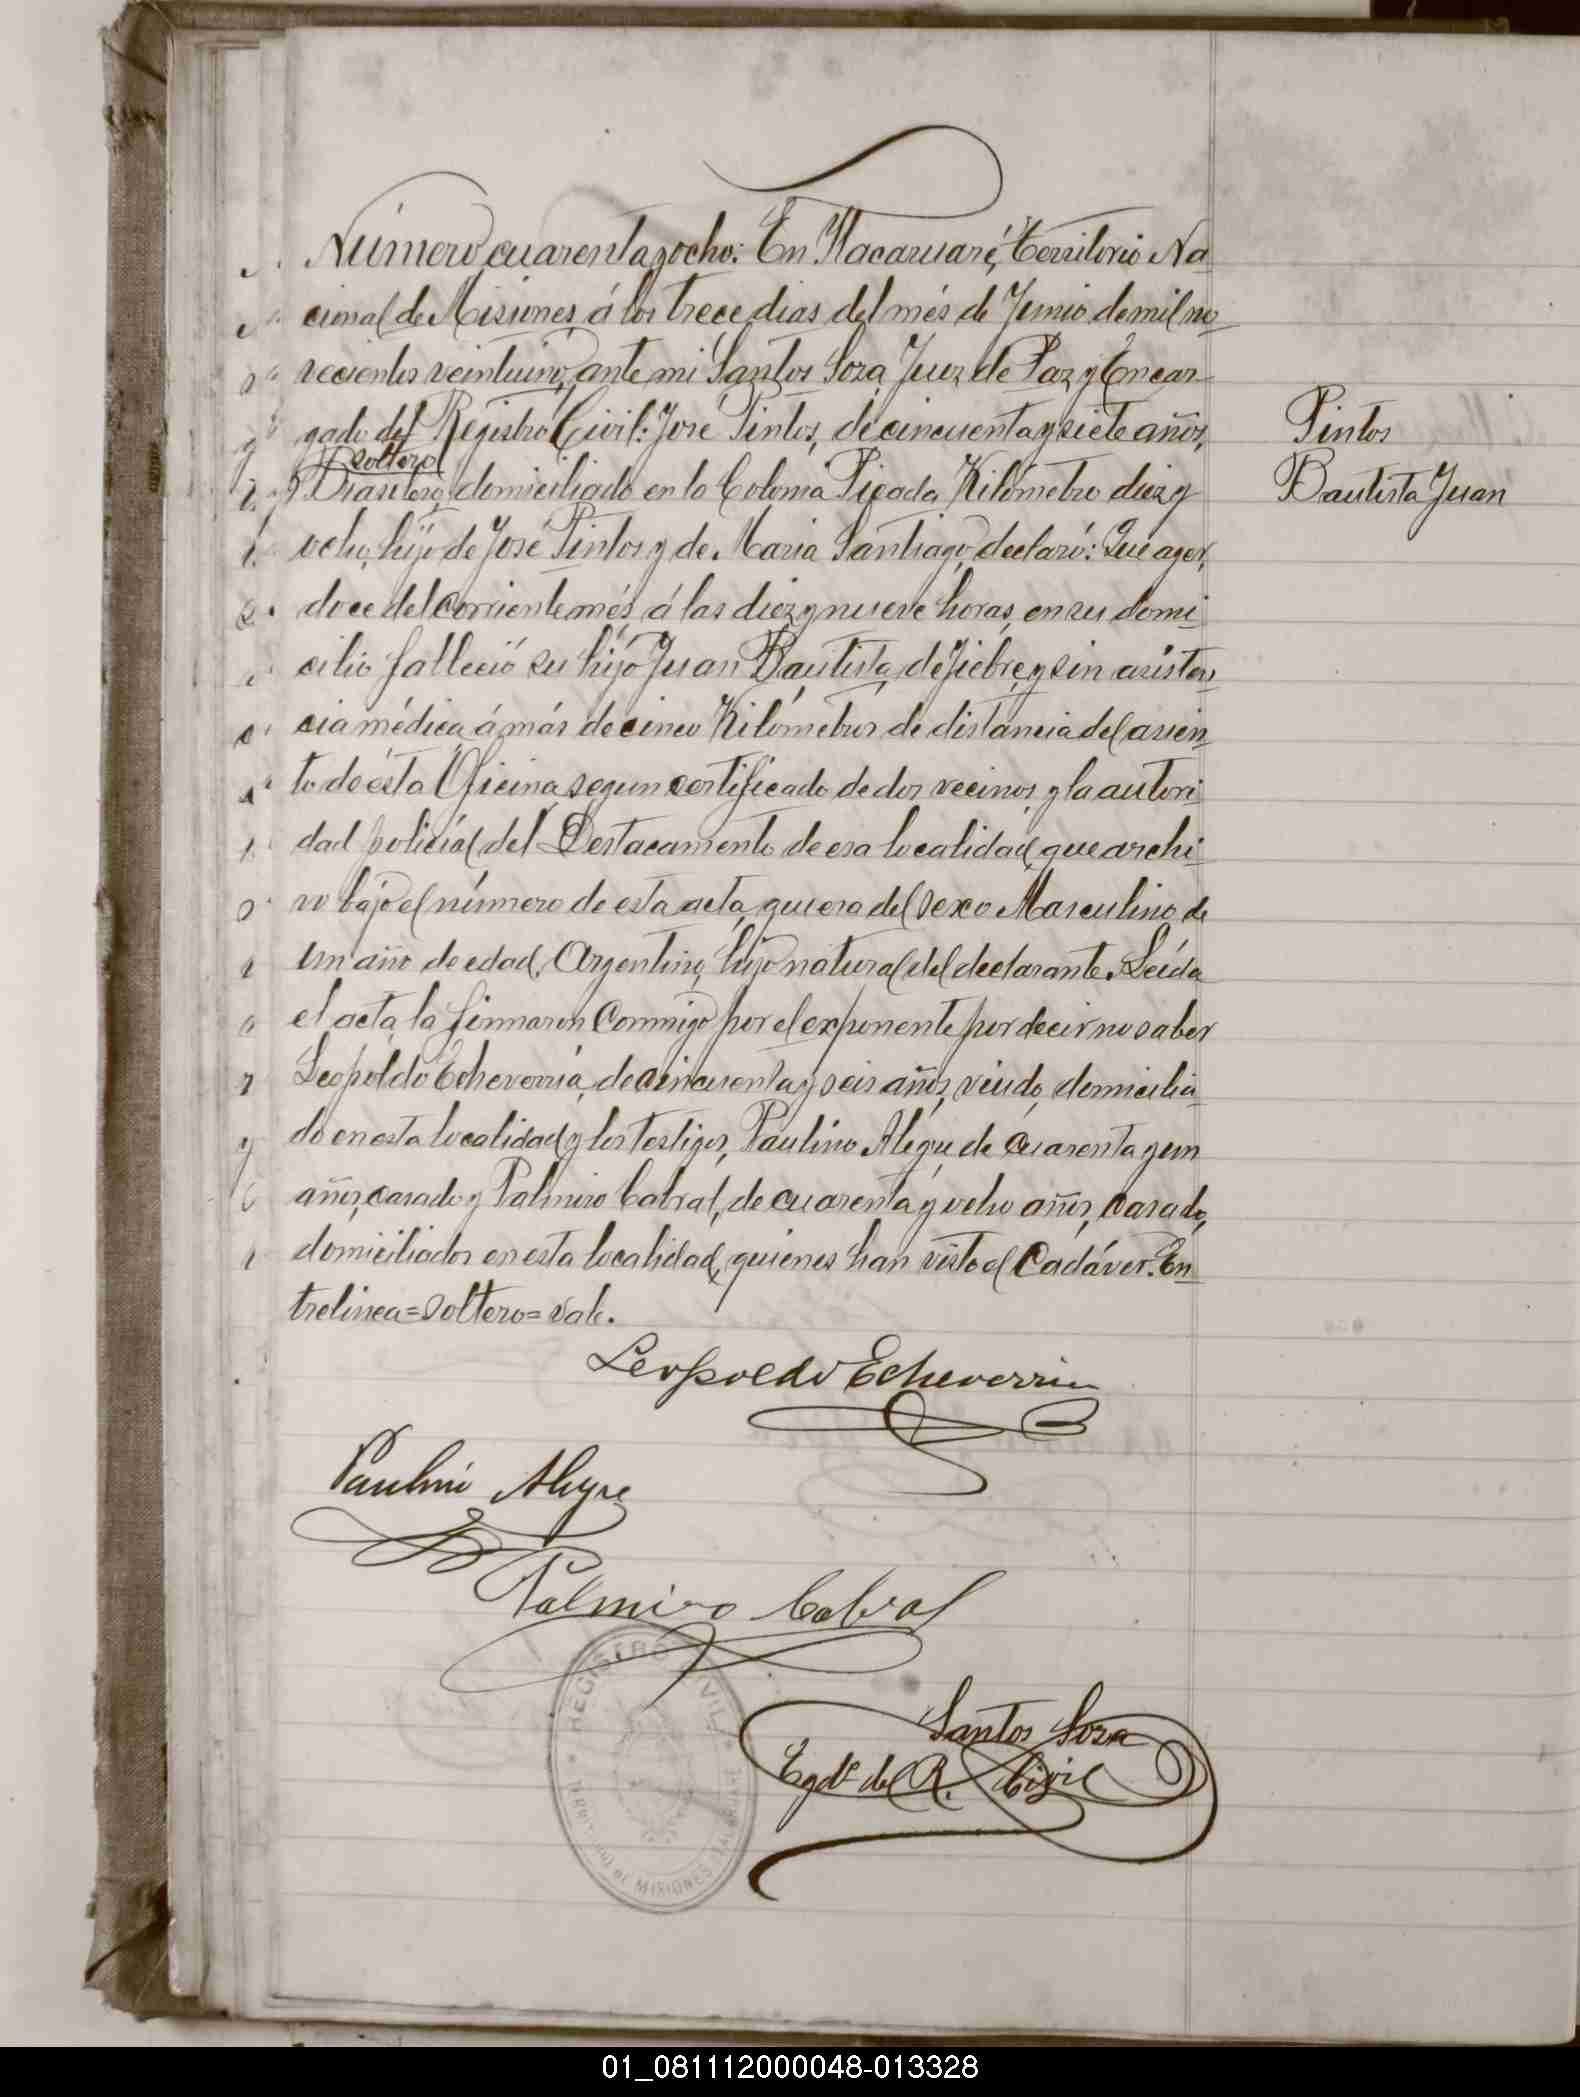 Número cuarenta y ocho: En Itacaruaré, Territorio Na
cional de Misiones, á los trece dias del més de Junio de mil no
vecientos veintiuno, ante mi Santos Soza, Juez de Paz y Encar-
gado del Registro Civil: José Pintos, de cincuenta y siete años,
soltero
Brasilero, domiciliado en la Colonia Picada Kilómetro diez y
ocho, hijo de José Pintos y de Maria Santiago, declaró: Que ayer,
doce del corriente més, á las diez y nueve horas, en su domi
cilio falleció su hijo Juan Bautista, de fiebre, y sin asisten
cia médica á más de cinco Kilómetros de distancia del asien
to de ésta Oficina segun certificado de dos vecinos, y la autori
dad policial del Destacamento de esa localidad, que archi
vo bajo el número de esta acta, que era del sexo Masculino, de
un año de edad, Argentino, hijo natural del declarante. Leída
el acta, la firmaron conmigo por el exponente por decir no saber
Leopoldo Echeverria, de cincuenta y seis años, viudo, domicilia
do en esta localidad y los testigos, Paulino Alegre, de cuarenta y un
años, casado y Palmiro Cabral, de cuarenta y ocho años, casado,
domiciliados en esta localidad, quienes han visto el cadáver. En
trelinea=soltero=vale.
Pintos
Bautista Juan
Leopoldo Echeverria
Paulino Alegre
Palmiro Cabral
REGISTRO CIVIL
TERRITORIO DE MISIONES
Santos Soza
Egdo. del R. Civil
01_081112000048-013328